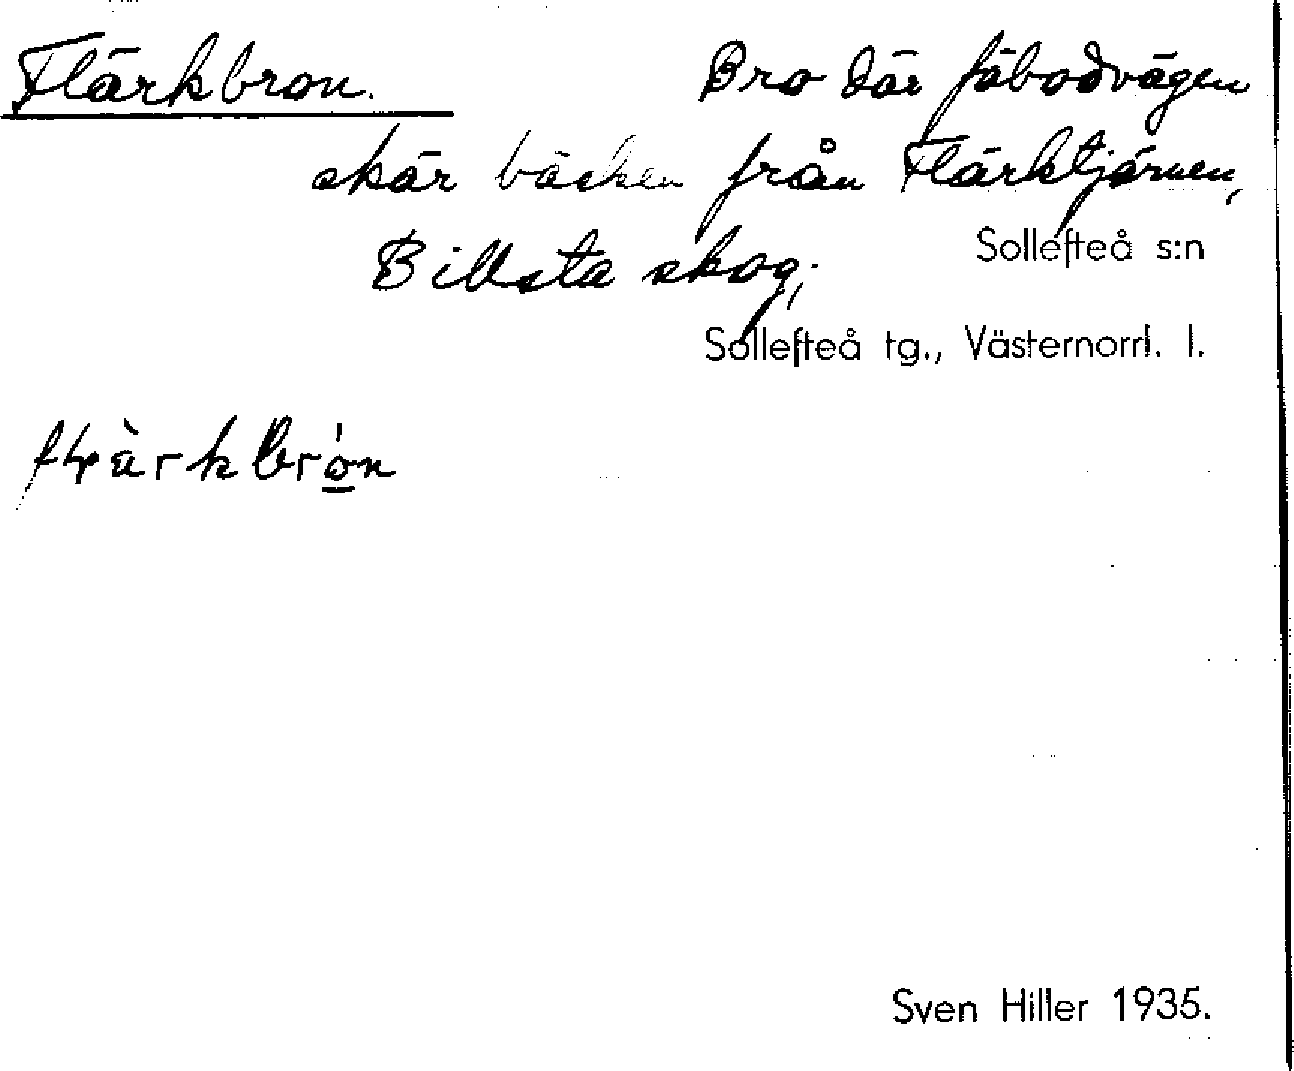 Flärkbron. Bro där fäbodvägen
skär bäcken från Flärktjärnen,
Billsta skog,
Sollefteå s:n
Sollefteå tg., Västernorrl. l.
Sven Hiller 1935.